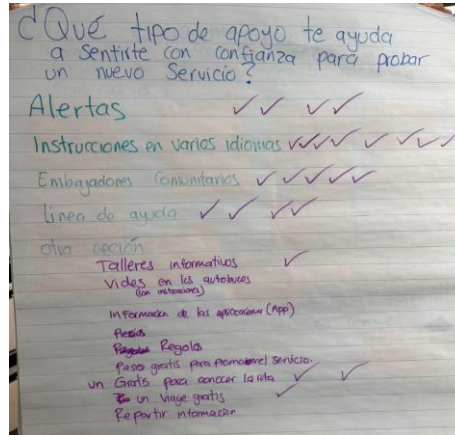 ¿Qué tipo de apoyo te ayuda
a Sentirte con confianza para probar
un nuevo Servicio?
Alertas ✓✓ ✓✓
Instrucciones en varios idiomas ✓✓✓✓ ✓ ✓✓✓
Embajadores Comunitarios ✓✓✓✓✓
Linea de ayuda ✓ ✓ ✓✓
otra opción
Talleres informativos ✓
Vides en los autobuces
(con instrucciones)
Información de las aplicaciones (App)
Regalo
Pases gratis para promover el servicio.
un Gratis para conocer la ruta ✓ ✓
un viaje gratis ✓
Repartir información